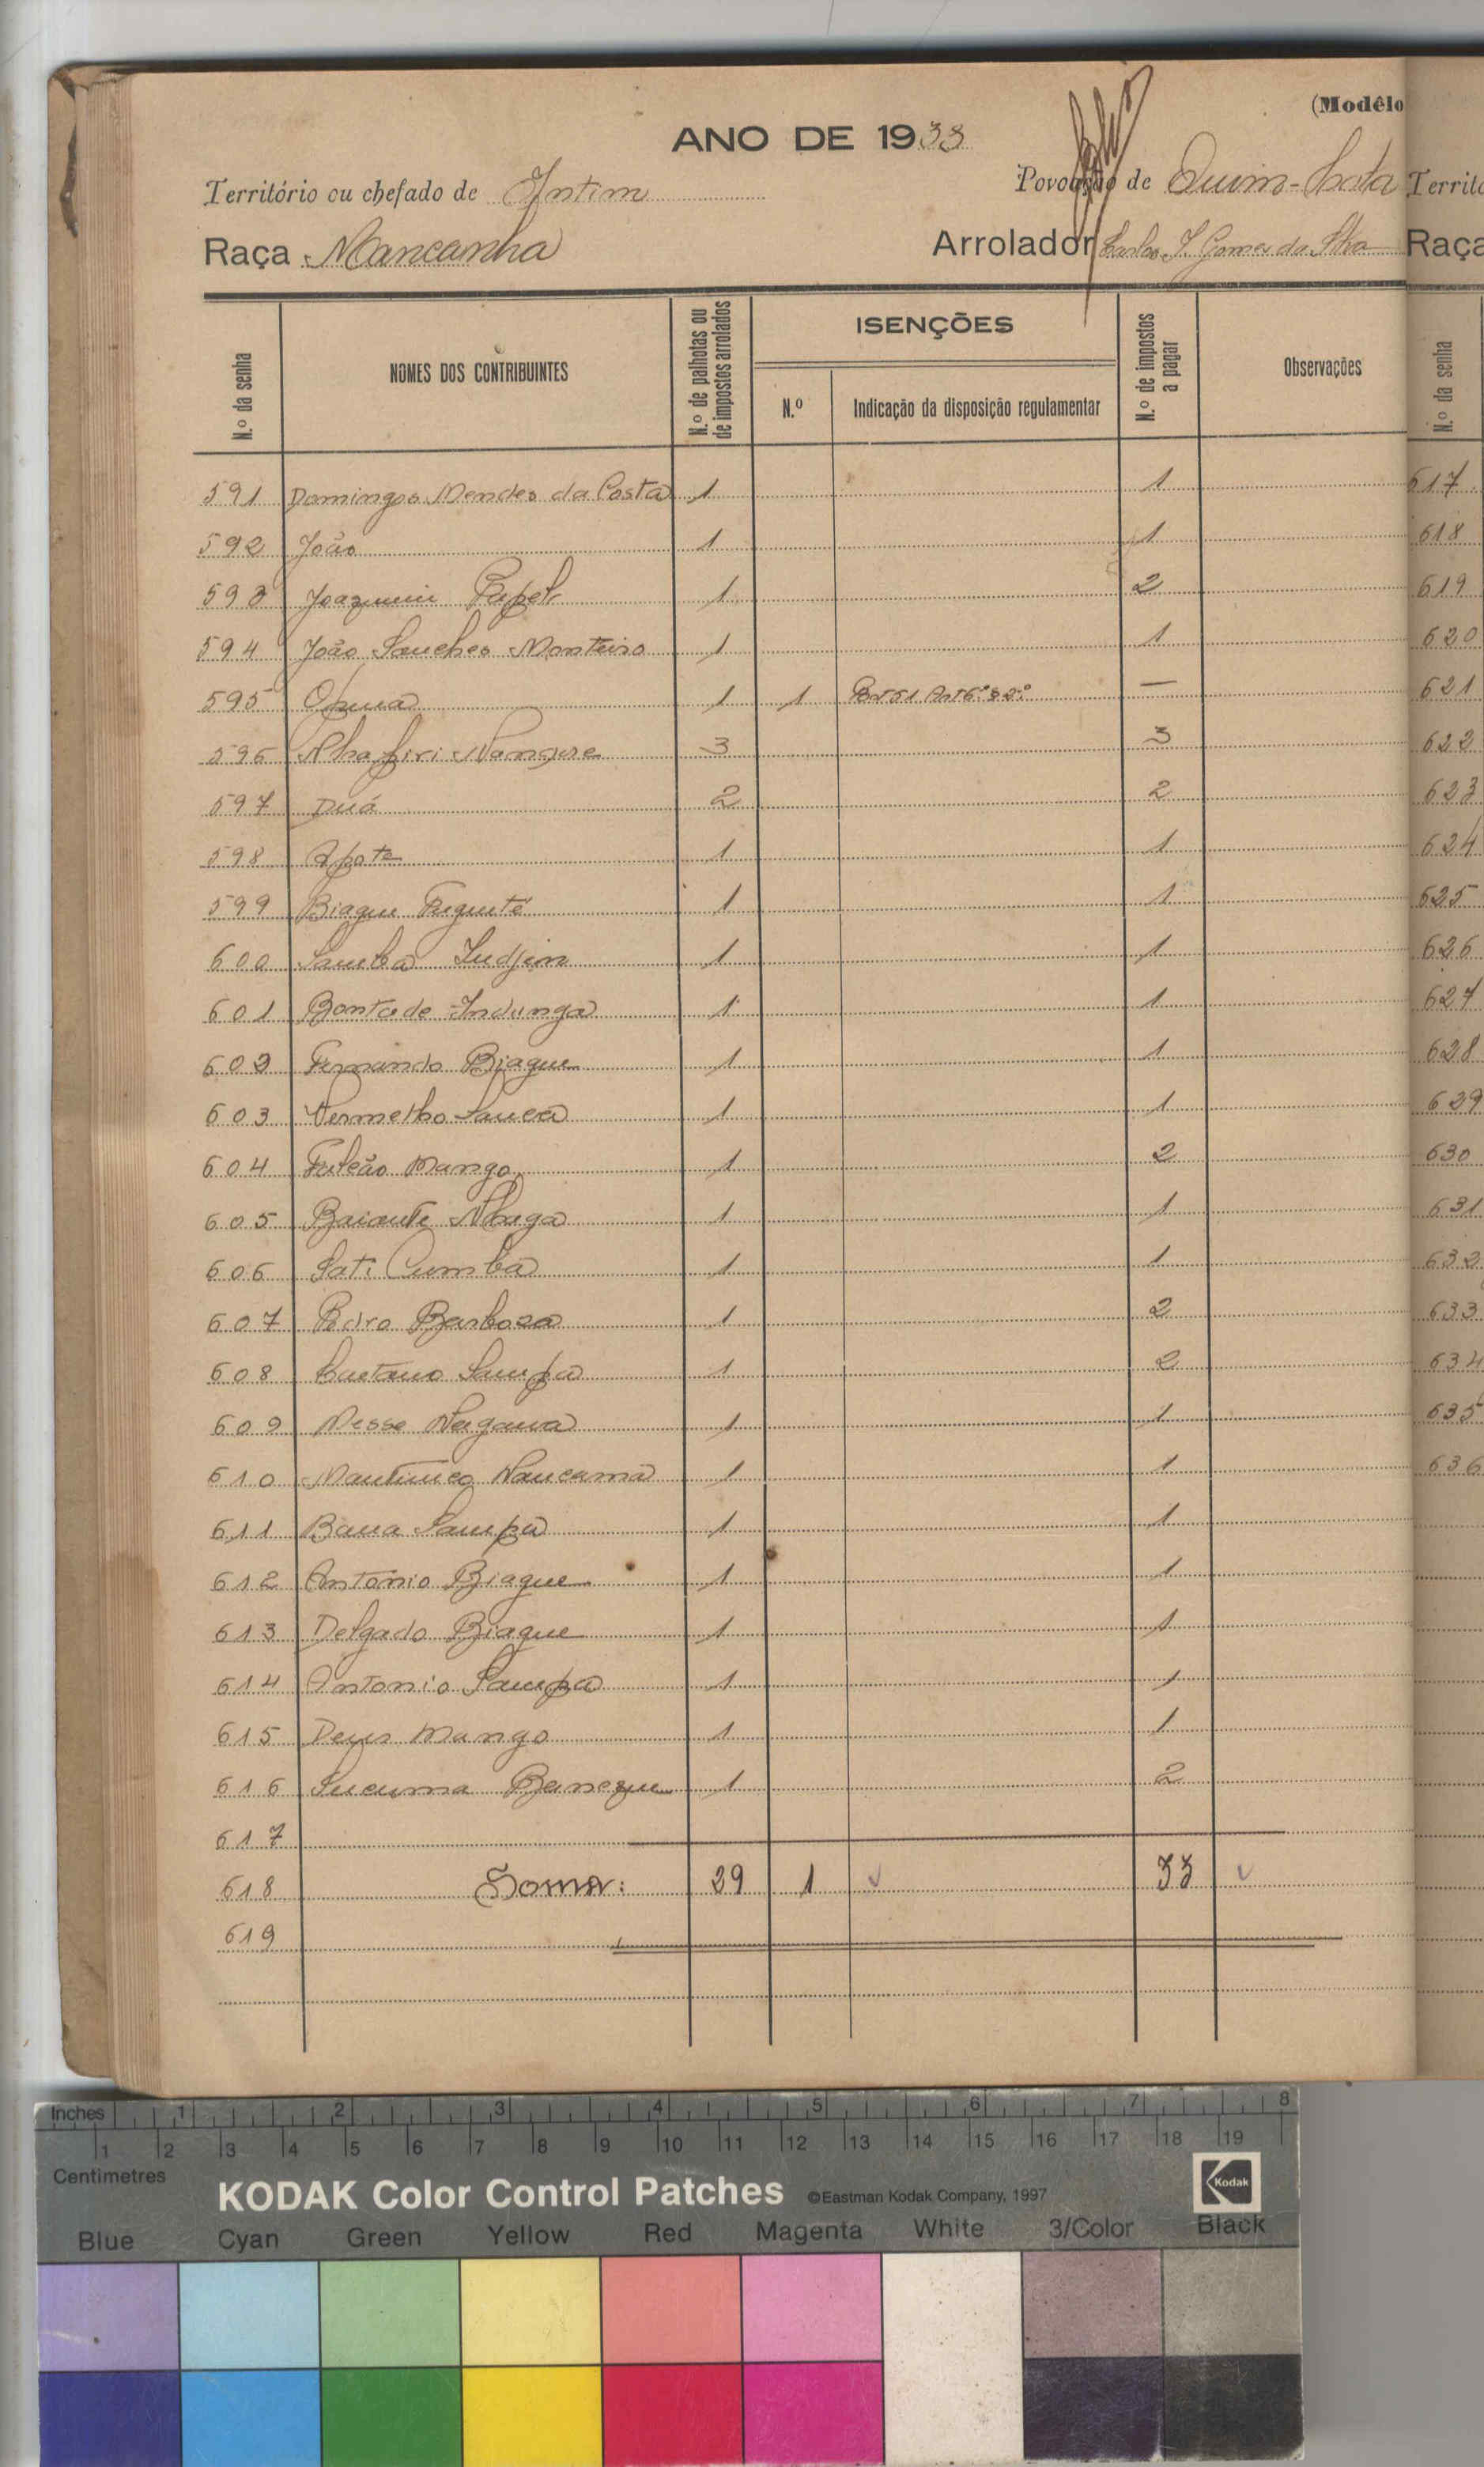 (Modêlo
ANO DE 1933
Território ou chefado de Intim
Povoação de Quim-
Raça Mancanha
Arrolador Carlos J. Gomes da Silva
N.º da senha
NOMES DOS CONTRIBUINTES
N.º de palhotas ou de impostos arrolados
ISENÇÕES
N.º
Indicação da disposição regulamentar
N.º de impostos a pagar
Observações
591 Domingos Mendes da Costa 1 1
592 João 1 1
593 Joaquim Papel 1 2
594 João Sanches Monteiro 1 1
595 1 1 —
596 3 3
597 Duá 2 2
598 Apote 1 1
599 Biague 1 1
600 Samba 1 1
601 Bontade Indunga 1 1
602 Fernando Biague 1 1
603 Vermelho Sanca 1 1
604 Mango 1 2
605 1 1
606 Sati Cumba 1 1
607 Pedro Barbosa 1 2
608 Caetano Sampa 1 2
609 Nesse 1 1
610 1 1
611 Bana Sampa 1 1
612 Antonio Biague 1 1
613 Delgado Biague 1 1
614 Antonio Sampa 1 1
615 Deus Mango 1 1
616 Sucuma 1 2
617
618 Soma: 29 1 33
619
Territó
Raça
N.º da senha
617
618
619
620
621
622
623
624
625
626
627
628
629
630
631
632
633
634
635
636
Inches 1 2 3 4 5 6 7 8
1 2 3 4 5 6 7 8 9 10 11 12 13 14 15 16 17 18 19
Centimetres
KODAK Color Control Patches ©Eastman Kodak Company, 1997 Kodak
Blue Cyan Green Yellow Red Magenta White 3/Color Black